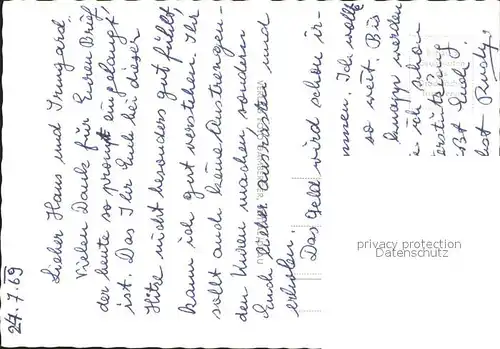 24.7.69
Lieber Hans und Irmgard.
Vielen Dank für Euren Brief,
der heute so prompt eingelangt,
ist. Das Ihr Euch bei dieser
Hitze nicht besonders gut fühlt
kann ich gut verstehen. Ihr
sollt auch keine Anstrengen-
den Kuren machen, sondern
Euch lieber ausrasten und
erholen
Das Geld wird schon ir-
mmen. Ich wollte
so weit. Bis
knapp werden
ich schon
erstützung
ßt Euch
Rudy.
privacy protection
Datenschutz